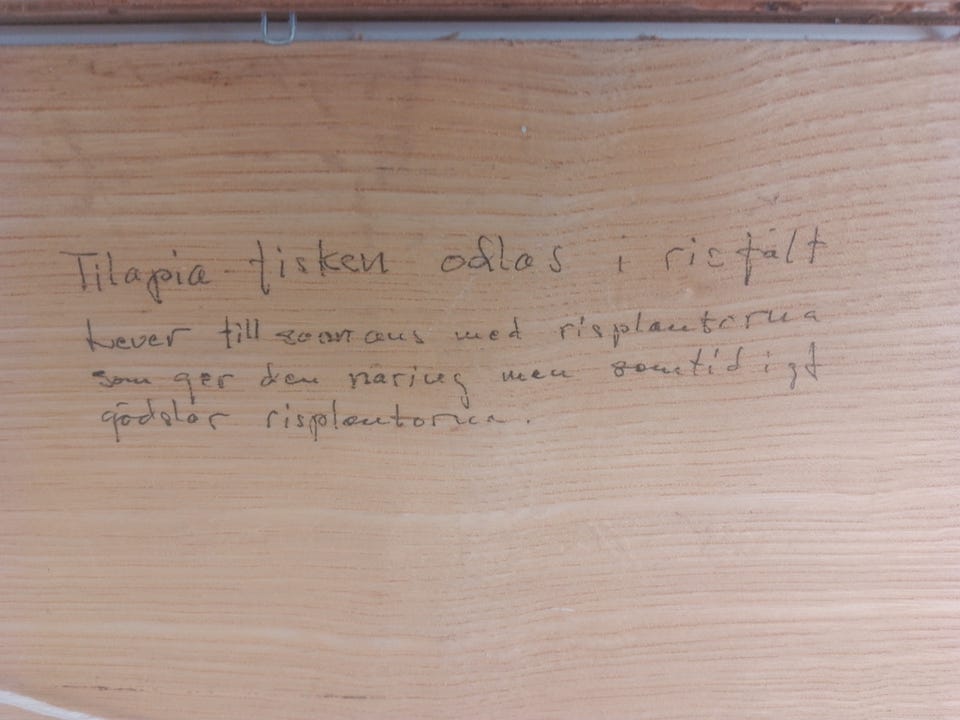 Tilapia-fisken odlas i risfält
Lever tillsammans med risplantorna
som ger den näring men samtidigt
gödslar risplantorna.